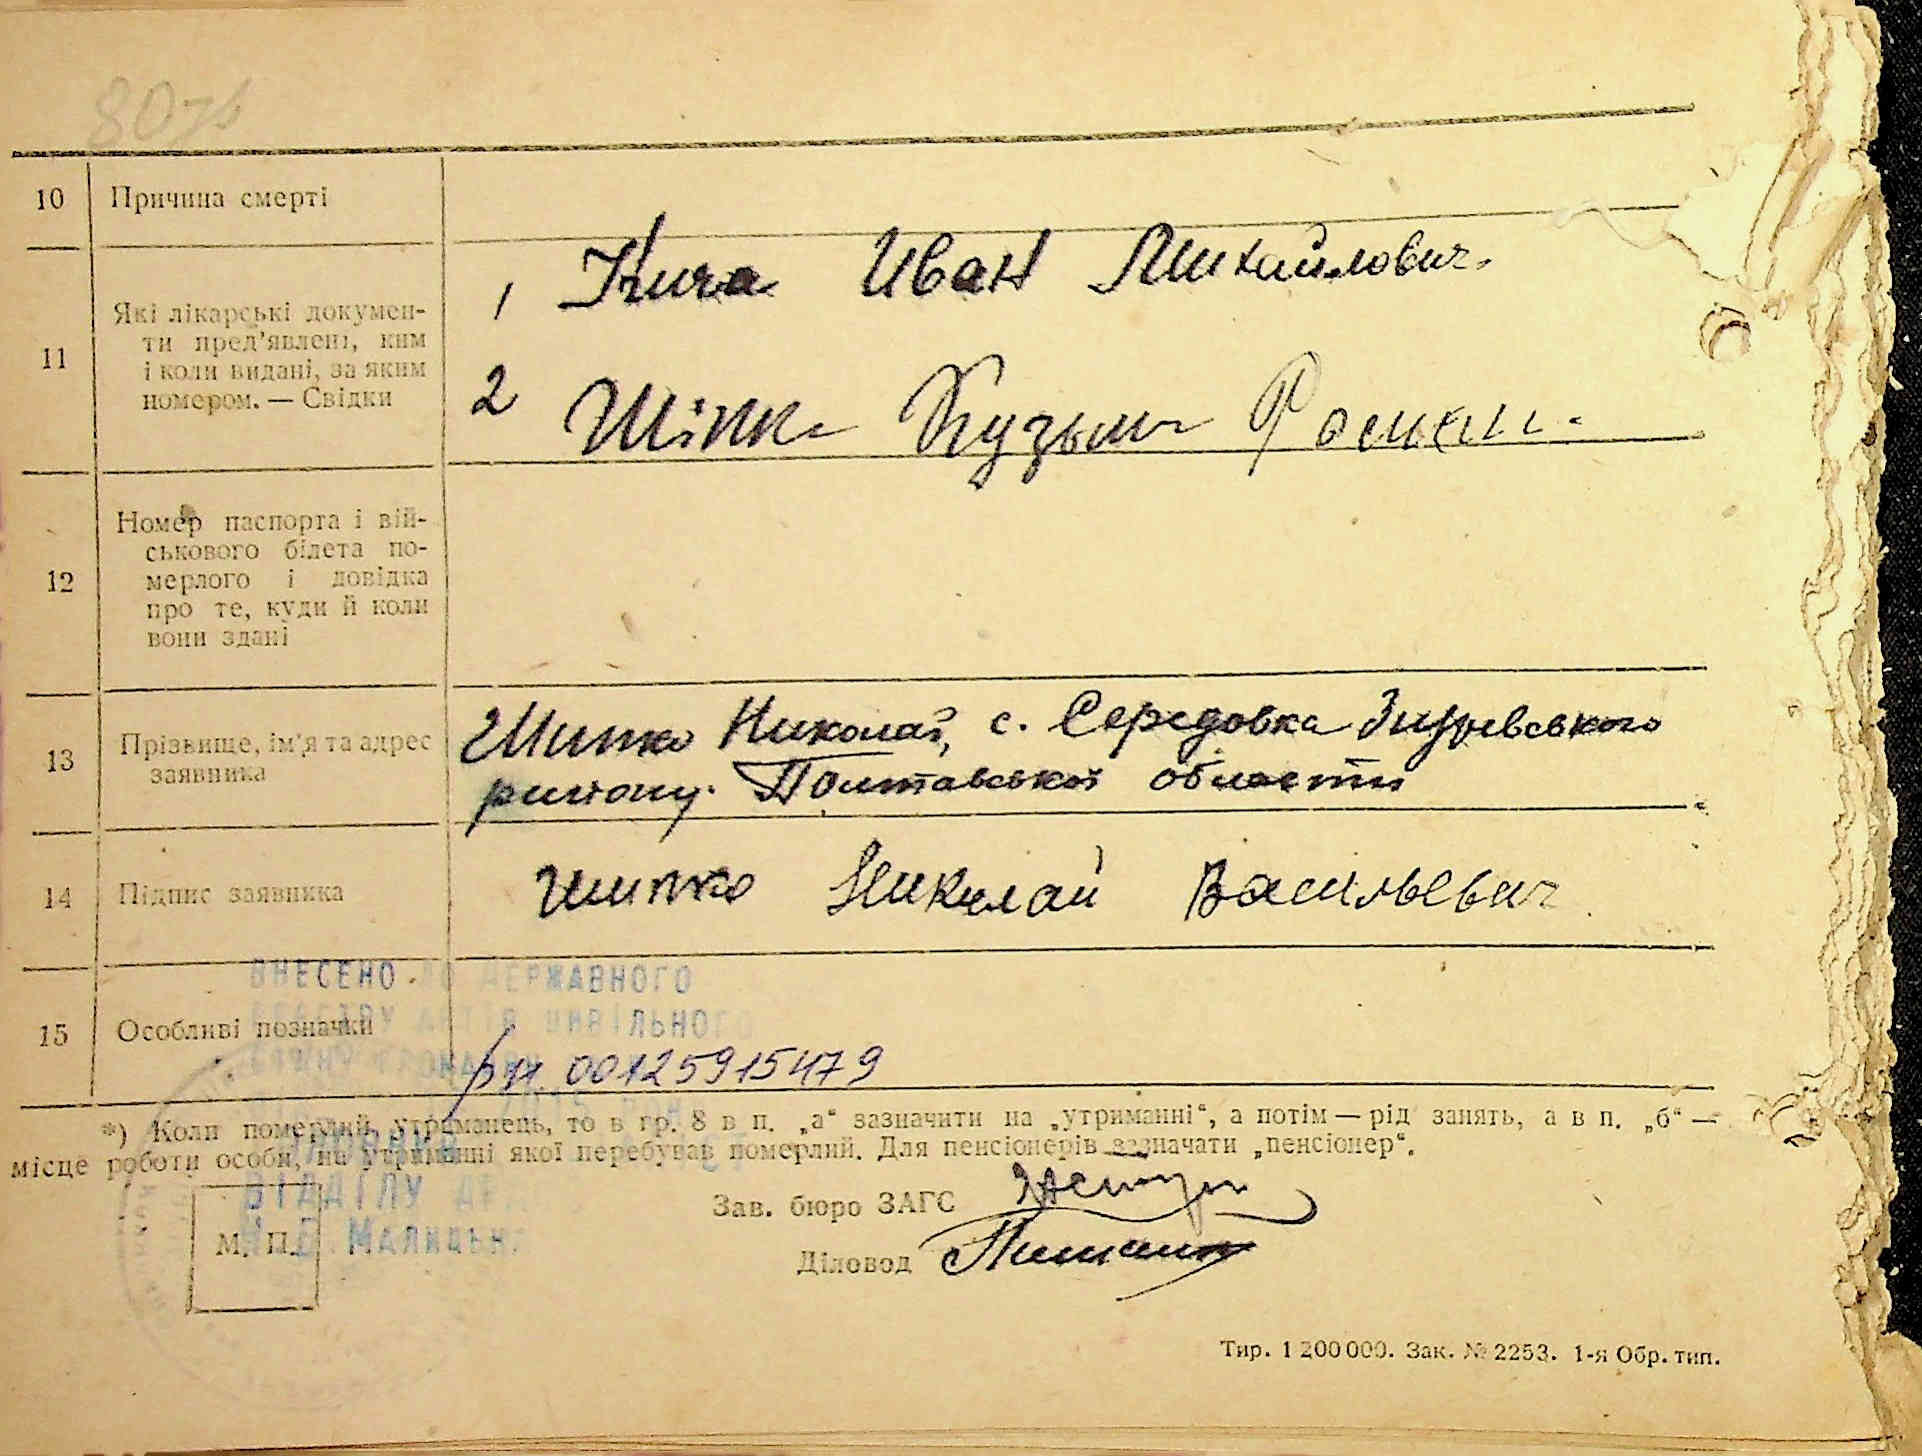 80зв
10 Причина смерті
11 Які лікарські докумен-
ти пред'явлені, ким
і коли видані, за яким
номером. — Свідки
1 Кича Иван Михайлович.
2 Шіпк Кузьм Роман.
12 Номер паспорта і вій-
ськового білета по-
мерлого і довідка
про те, куди й коли
вони здані
13 Прізвище, ім'я та адрес
заявника
Шипко Николай, с. Середовка Згуревського
району. Полтавської области
14 Підпис заявника
Шипко Николай Васильевич
15 Особливі позначки
ВНЕСЕНО ДО ДЕРЖАВНОГО
РЕЄСТРУ АКТІВ ЦИВІЛЬНОГО
СТАНУ ГРОМАДЯН
00125915479
*) Коли померлий, утриманець, то в гр. 8 в п. „а“ зазначити на „утриманні“, а потім — рід занять, а в п. „б“ —
місце роботи особи, на утриманні якої перебував померлий. Для пенсіонерів зазначати „пенсіонер“.
ВІДДІЛУ
Зав. бюро ЗАГС
М. П.
Діловод
Тир. 1 200 000. Зак. № 2253. 1-я Обр. тип.